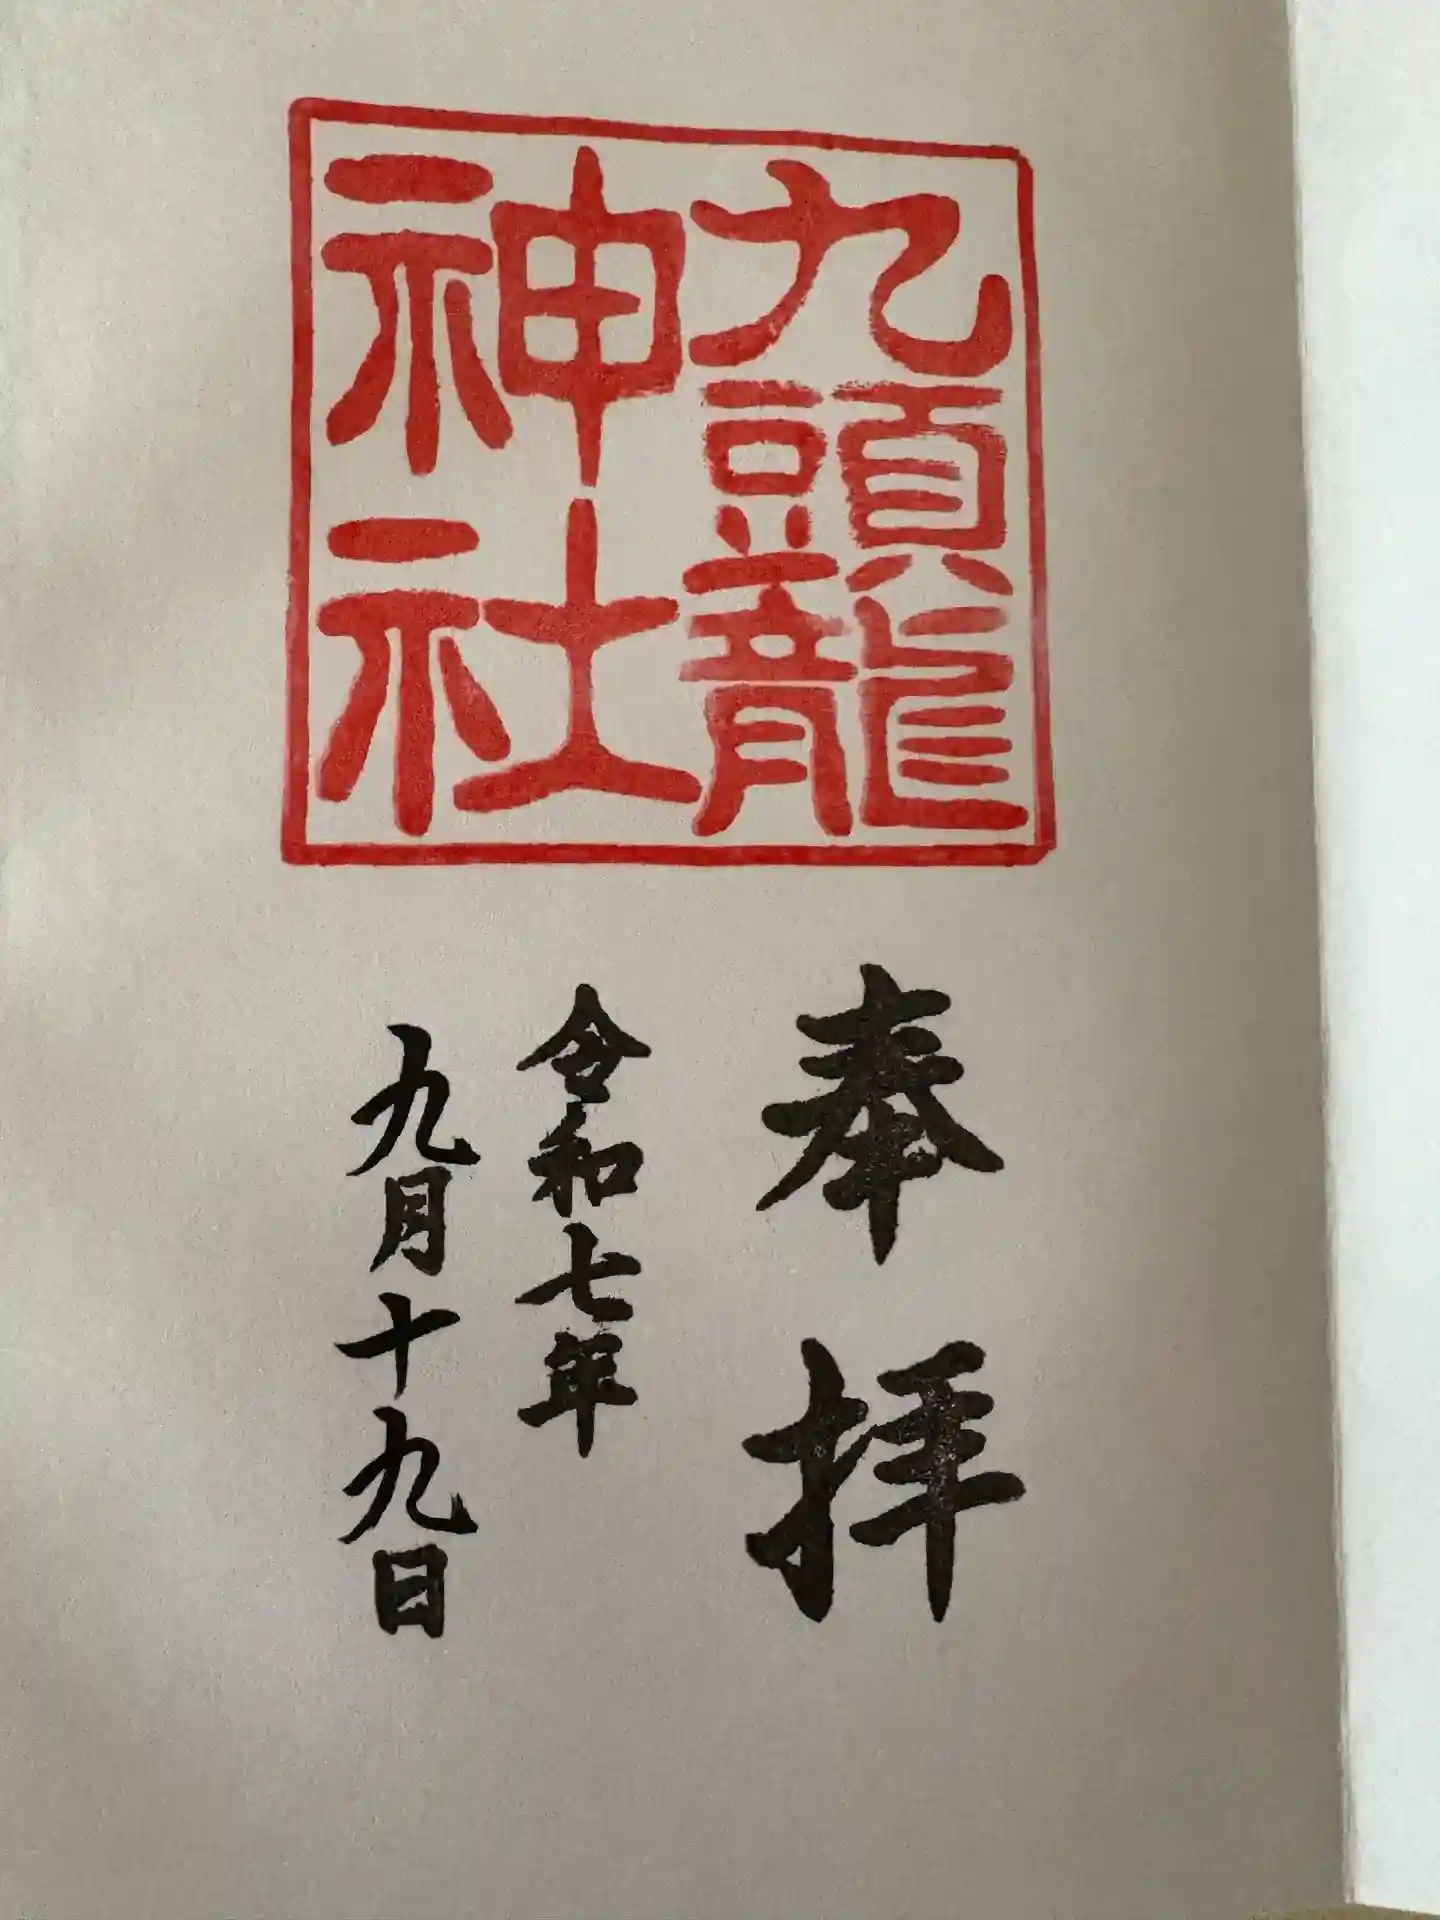 九頭龍
神社
奉拝
令和七年
九月十九日